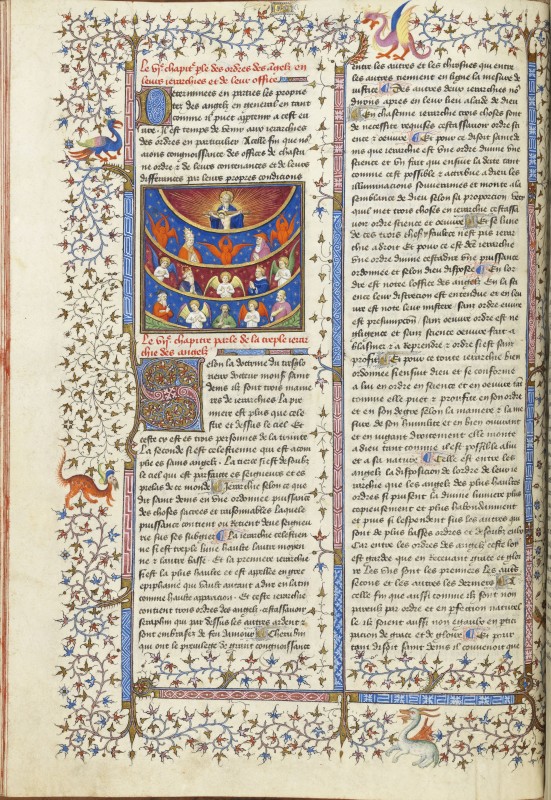 Le vi.e chapitre ple des ordres des angels en
leurs ierarchies et de leur office
Determinees en parties les proprie
tez des angels en general en tant
comme il puet appartenir a ceste eu
ure. Il est temps de venir aux ierarchies
des ordres en particulier A celle fin que nous
aions congnoissance des offices de chascune
ordre et de leurs contenances et de leurs
differences par leurs propres condicions
Le vii.e chapitre parle de la treple ierar
chie des angels
Selon la doctrine du treshono
reur docteur monss saint
denis il sont trois manie
res de ierarchies La pre
miere est plus que cele
stre et dessus le ciel Et
ceste cy est es trois personnes de la trinite
La seconde si est celestienne qui est acom
plie es sains angels. La tierce si est dessoubz
le ciel qui est parfaite es seigneurs et es
prelas de ce monde Ierarchie selon ce que
dit saint denis est une ordonnee puissance
des choses sacrees et raisonnables laquele
puissance contient ou retient deue seigneu
rie sus ses subgiez La ierarchie celestien
ne si est treple lune haulte lautre moyen
ne et lautre basse. Et la premiere ierarchie
si est la plus haulte et est appellee en grec
epiphanie qui vault autant a dire en latin
comme haulte apparicion. Et ceste ierarchie
contient trois ordres des angels. cestassavoir
seraphin qui par dessus les autres ardent et
sont embrasez de feu damour Cherubin
qui ont le preuilege de grant congnoissance
entre les autres et les throsnes qui entre
les autres tiennent en ligne la mesure de
iustice Des autres deux ierarchies nous
dirons apres en leur lieu a laide de dieu
En chascune ierarchie trois choses sont
de necessite requises cestassavoir ordre sci
ence et oeuure Et pour ce dit saint de
nis que ierarchie est une ordre diuine une
science et un fait qui ensuit la deite tant
comme cest possible et attribue a dieu les
illuminacions souueraines et monte a la
semblance de dieu selon sa proporcion
trois choses en ierarchie cestassa
voir ordre science et oeuure Et se lune
de ces trois choses y fault ce nest pas ierar
chie a droit Et pour ce est dit ierarchie
une ordre diuine cestadire une puissance
ordonnee et selon dieu disposee En lor
dre est notee loffice des angels En la sci
ence leur discrecion est entendue et en leuure
est note leur mistere. Sans ordre euure
est presumpcion. sans oeuure ordre est ne
gligence et sans science oeuure fait a
blasmer et a reprendre et ordre si est sans
proufit Et pour ce toute ierarchie bien
ordonnee si ensuit dieu et se conforme
a lui en ordre en science et en oeuure tant
comme elle puet et proufite en son ordre
et en son degre selon la maniere et la me
sure de son humilite et en bien ouurant
et en iugant droitement elle monte
a dieu tant comme il est possible a lui
et a sa nature Telle est entre les
angels la disposicion de lordre de leur ie
rarchie que les angels des plus haultes
ordres si prennent la diuine lumiere plus
copieusement et plus habondamment
et puis si lespandent sus les autres qui
sont de plus basses ordres et dessoubz eulx
Car entre les ordres des angels ceste loy
est gardee que en receuant grace et gloi
re Les uns sont les premiers Les autres
secons et les autres les derniers
celle fin que aussi comme ilz sont non
pareils par ordre et en perfection naturele
ilz soient aussi non equaulx en partici
pacion de grace et de gloire Et pour
tant disoit saint denis il conuenoit que